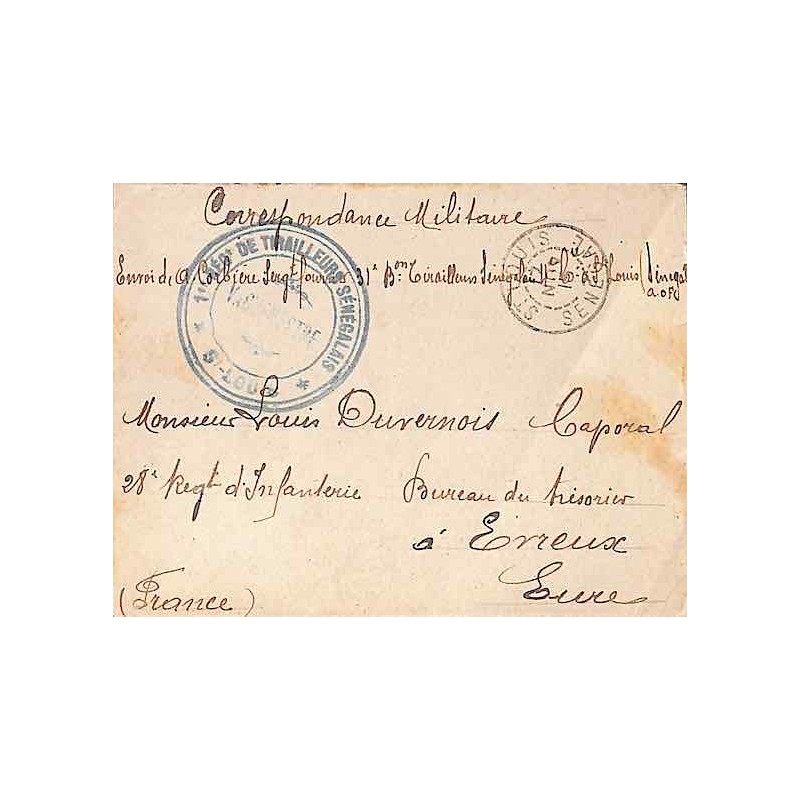 Correspondance Militaire
Envoi de A. Corbière Sergt fourrier 31e Bon Tirailleurs Sénégalais St Louis (Sénégal
A.O.F.)
1er RÉGt DE TIRAILLEURS SÉNÉGALAIS
VAGUEMESTRE
St-LOUIS
ST LOUIS
SENEGAL
Monsieur Louis Duvernois Caporal
28e Regt d'Infanterie Bureau du trésorier
à Evreux
(France) Eure